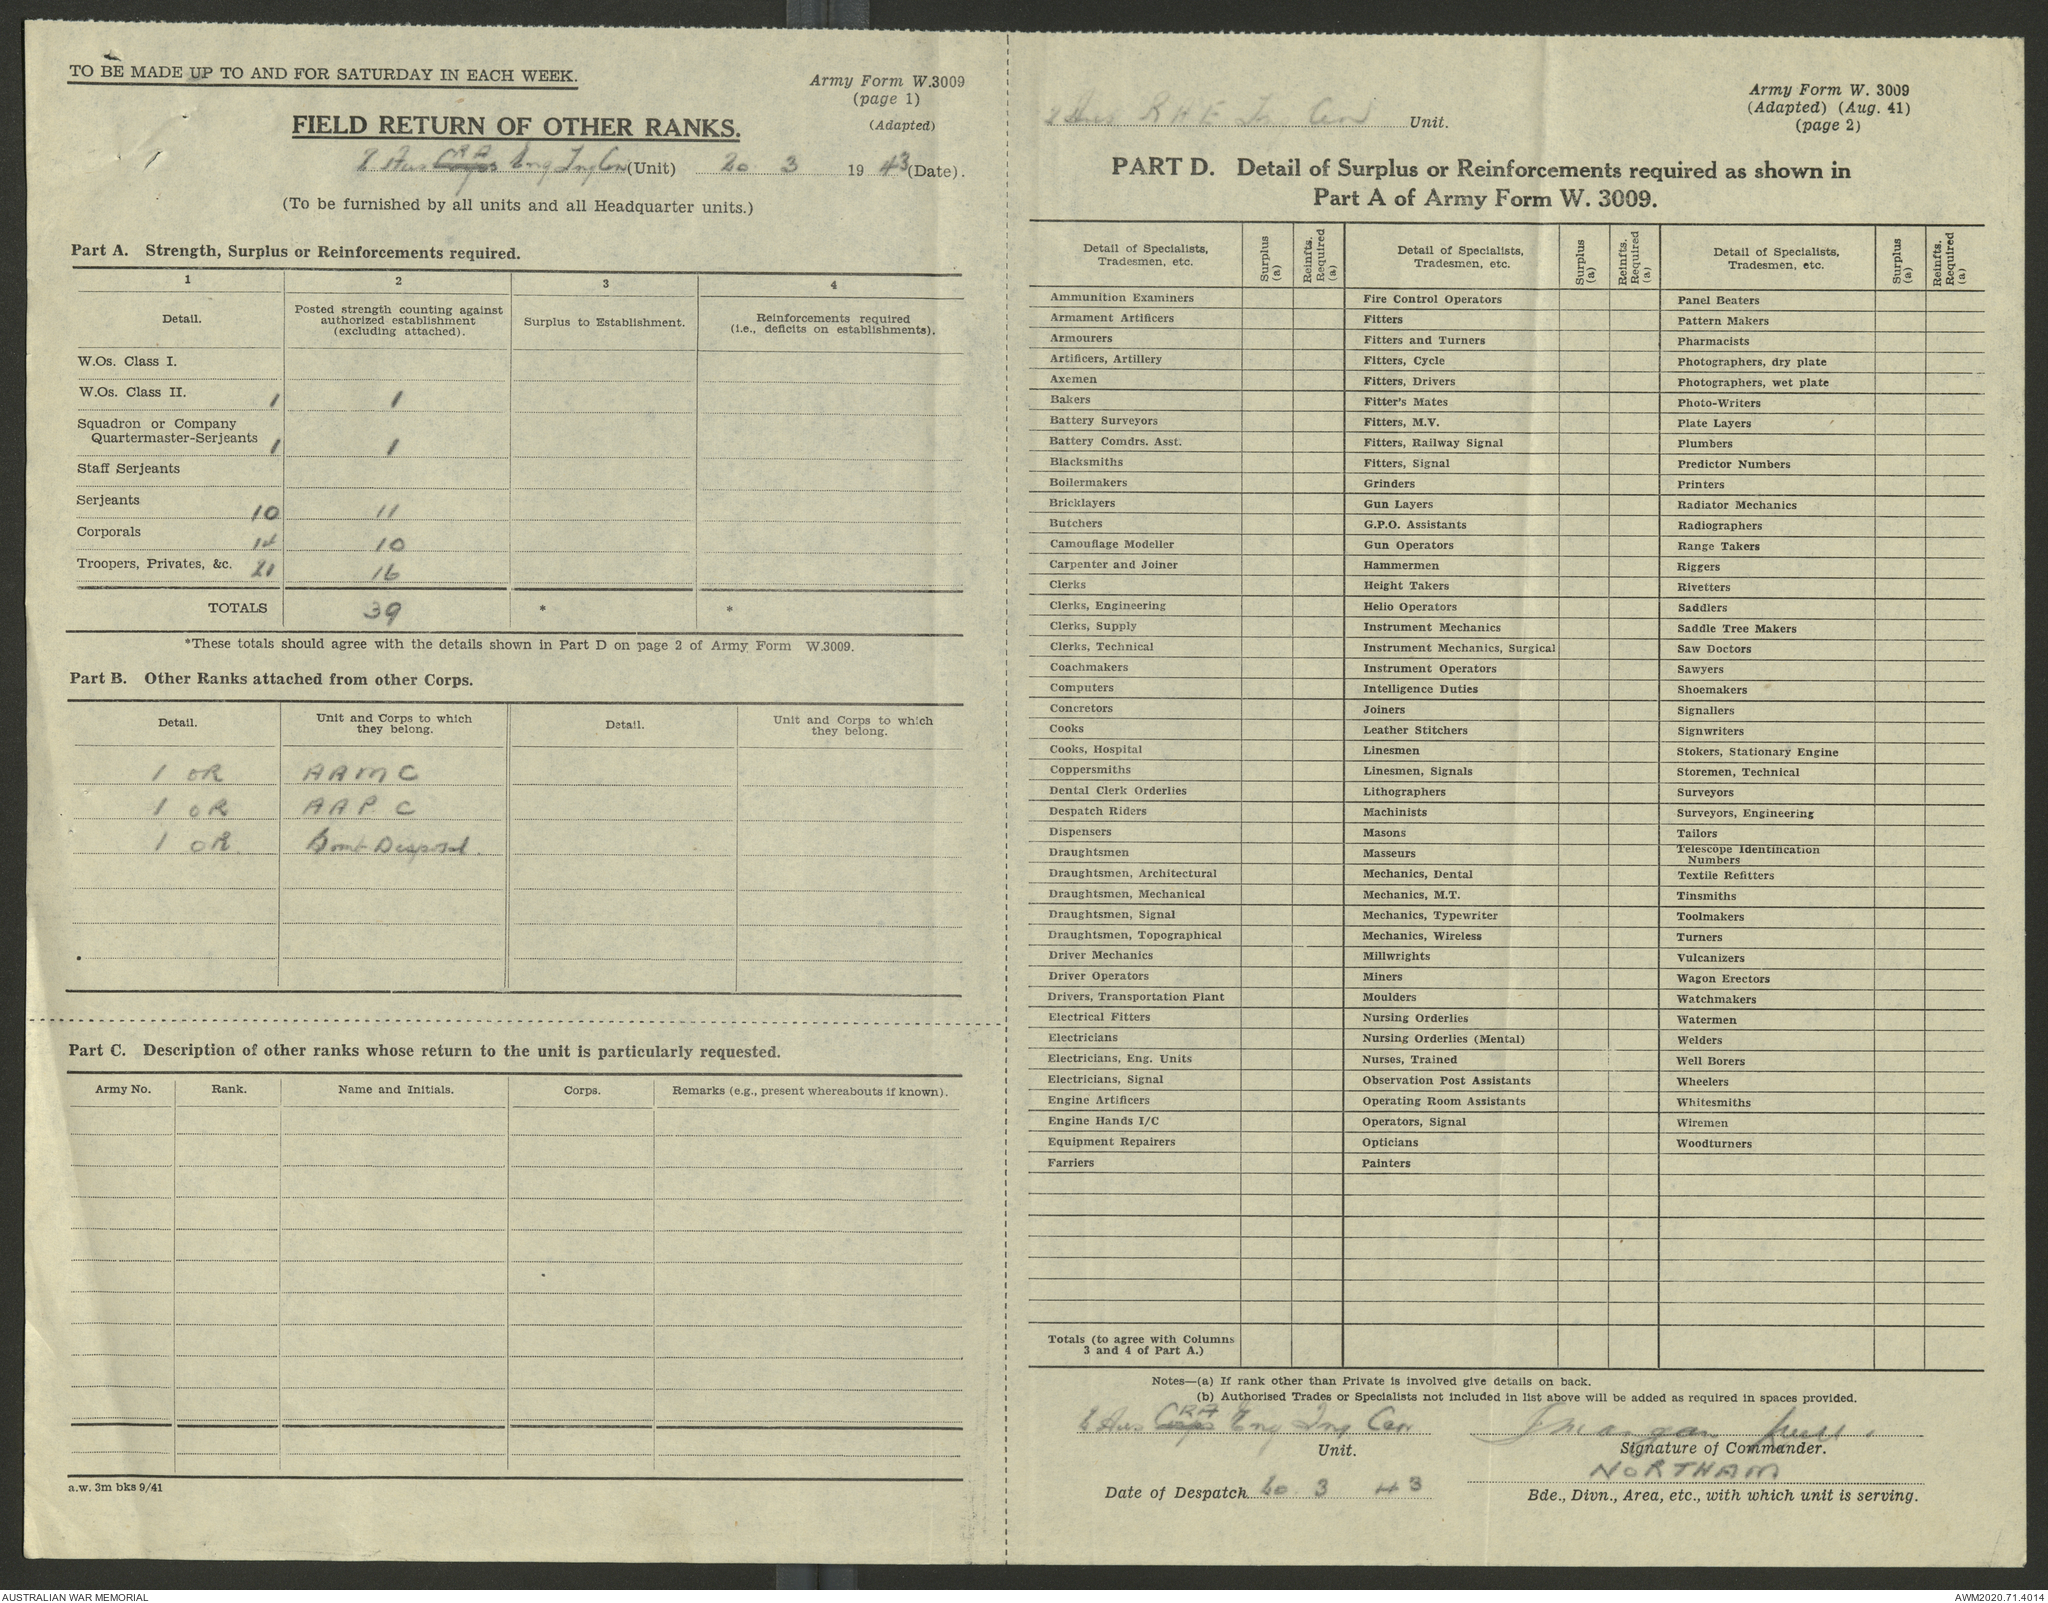 TO BE MADE UP TO AND FOR SATURDAY IN EACH WEEK.
Army Form W.3009
(page 1)
(Adapted)
FIELD RETURN OF OTHER RANKS.
2 Aus Corps RAE Eng Tng Cen (Unit) 20 3 1943 (Date).
(To be furnished by all units and all Headquarter units.)
Part A. Strength, Surplus or Reinforcements required.
1 2 3 4
Detail. Posted strength counting against authorized establishment (excluding attached). Surplus to Establishment. Reinforcements required (i.e., deficits on establishments).
W.Os. Class I.
W.Os. Class II. 1 1
Squadron or Company
Quartermaster-Serjeants 1 1
Staff Serjeants
Serjeants 10 11
Corporals 14 10
Troopers, Privates, &c. 21 16
TOTALS 39 * *
*These totals should agree with the details shown in Part D on page 2 of Army Form W.3009.
Part B. Other Ranks attached from other Corps.
Detail. Unit and Corps to which they belong. Detail. Unit and Corps to which they belong.
1 OR AAMC
1 OR AAPC
1 OR. Bomb Disposal.
Part C. Description of other ranks whose return to the unit is particularly requested.
Army No. Rank. Name and Initials. Corps. Remarks (e.g., present whereabouts if known).
a.w. 3m bks 9/41
Army Form W. 3009
(Adapted) (Aug. 41)
(page 2)
2 Aus Cen Unit.
PART D. Detail of Surplus or Reinforcements required as shown in
Part A of Army Form W. 3009.
Detail of Specialists, Tradesmen, etc. Surplus (a) Reinfts. Required (a) Detail of Specialists, Tradesmen, etc. Surplus (a) Reinfts. Required (a) Detail of Specialists, Tradesmen, etc. Surplus (a) Reinfts. Required (a)
Ammunition Examiners Fire Control Operators Panel Beaters
Armament Artificers Fitters Pattern Makers
Armourers Fitters and Turners Pharmacists
Artificers, Artillery Fitters, Cycle Photographers, dry plate
Axemen Fitters, Drivers Photographers, wet plate
Bakers Fitter's Mates Photo-Writers
Battery Surveyors Fitters, M.V. Plate Layers
Battery Comdrs. Asst. Fitters, Railway Signal Plumbers
Blacksmiths Fitters, Signal Predictor Numbers
Boilermakers Grinders Printers
Bricklayers Gun Layers Radiator Mechanics
Butchers G.P.O. Assistants Radiographers
Camouflage Modeller Gun Operators Range Takers
Carpenter and Joiner Hammermen Riggers
Clerks Height Takers Rivetters
Clerks, Engineering Helio Operators Saddlers
Clerks, Supply Instrument Mechanics Saddle Tree Makers
Clerks, Technical Instrument Mechanics, Surgical Saw Doctors
Coachmakers Instrument Operators Sawyers
Computers Intelligence Duties Shoemakers
Concretors Joiners Signallers
Cooks Leather Stitchers Signwriters
Cooks, Hospital Linesmen Stokers, Stationary Engine
Coppersmiths Linesmen, Signals Storemen, Technical
Dental Clerk Orderlies Lithographers Surveyors
Despatch Riders Machinists Surveyors, Engineering
Dispensers Masons Tailors
Draughtsmen Masseurs Telescope Identification Numbers
Draughtsmen, Architectural Mechanics, Dental Textile Refitters
Draughtsmen, Mechanical Mechanics, M.T. Tinsmiths
Draughtsmen, Signal Mechanics, Typewriter Toolmakers
Draughtsmen, Topographical Mechanics, Wireless Turners
Driver Mechanics Millwrights Vulcanizers
Driver Operators Miners Wagon Erectors
Drivers, Transportation Plant Moulders Watchmakers
Electrical Fitters Nursing Orderlies Watermen
Electricians Nursing Orderlies (Mental) Welders
Electricians, Eng. Units Nurses, Trained Well Borers
Electricians, Signal Observation Post Assistants Wheelers
Engine Artificers Operating Room Assistants Whitesmiths
Engine Hands I/C Operators, Signal Wiremen
Equipment Repairers Opticians Woodturners
Farriers Painters
Totals (to agree with Columns
3 and 4 of Part A.)
Notes—(a) If rank other than Private is involved give details on back.
(b) Authorised Trades or Specialists not included in list above will be added as required in spaces provided.
2 Aus Corps Eng Tng Cen
Unit.
Signature of Commander.
NORTHAM
Date of Despatch 20 3 43
Bde., Divn., Area, etc., with which unit is serving.
AUSTRALIAN WAR MEMORIAL
AWM2020.71.4014